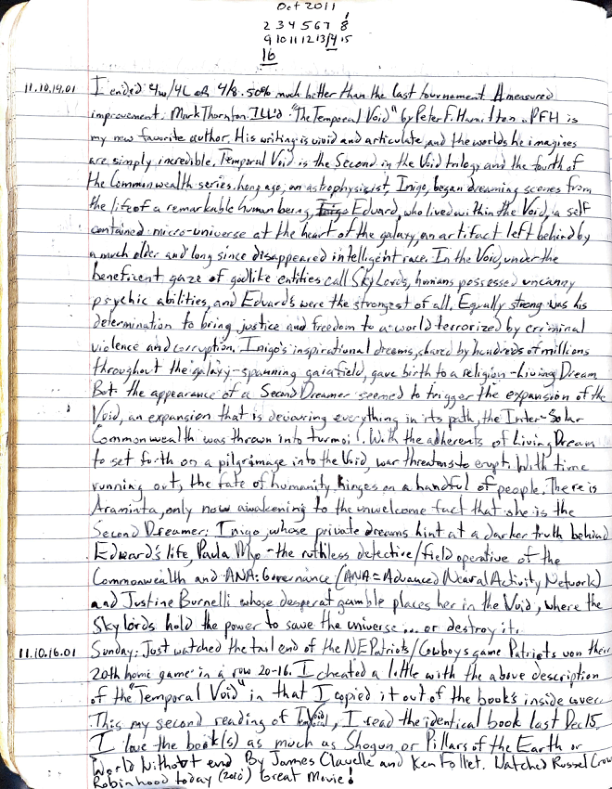 Oct 2011
1
2 3 4 5 6 7 8
9 10 11 12 13 14 15
16
11.10.14.01 I ended 4w/4L or 4/8. 50% much better than the last tournament. A measured
improvement. Mark Thornton. "The Temporal Void" by Peter F. Hamilton. PFH is
my new favorite author. His writing is vivid and articulate and the worlds he imagines
are simply incredible. Temporal Void is the second in the Void trilogy and the fourth of
the Commonwealth series. Long ago, an astrophysicist, Inigo, began dreaming scenes from
the life of a remarkable human being, Inigo Edward, who lived within the Void, a self
contained micro-universe at the heart of the galaxy, an artifact left behind by
a much older and long since disappeared intelligent race. In the Void, under the
beneficent gaze of godlike entities call SkyLords, humans possessed uncanny
psychic abilities, and Edwards were the strongest of all. Equally strong was his
determination to bring justice and freedom to a world terrorized by criminal
violence and corruption. Inigo's inspirational dreams, shared by hundreds of millions
throughout the galaxy-spanning gaiafield, gave birth to a religion - Living Dream
But the appearance of a Second Dreamer seemed to trigger the expansion of the
Void, an expansion that is devouring everything in its path, the Inter-Solar
Commonwealth was thrown into turmoil. With the adherents of Living Dream
to set forth on a pilgrimage into the Void, war threatens to erupt. With time
running out, the fate of humanity hinges on a handful of people. There is
Araminta, only now awakening to the unwelcome fact that she is the
Second Dreamer: Inigo, whose private dreams hint at a darker truth behind
Edward's life, Paula Myo - the ruthless detective/field operative of the
Commonwealth and ANA: Governance (ANA = Advanced Neural Activity Network)
and Justine Burnelli whose desperat gamble places her in the Void, where the
Skylords hold the power to save the universe ... or destroy it.
11.10.16.01 Sunday: Just watched the tail end of the NE Patriots/Cowboys game Patriots won their
20th home game in a row 20-16. I cheated a little with the above description
of the "Temporal Void" in that I copied it out of the book's inside cover.
This my second reading of T Void, I read the identical book last Dec 15.
I love the book(s) as much as Shogun or Pillars of the Earth or
World Without end By James Clavelle and Ken Follet. Watched Russel Crow
Robinhood today (2010) Great Movie!